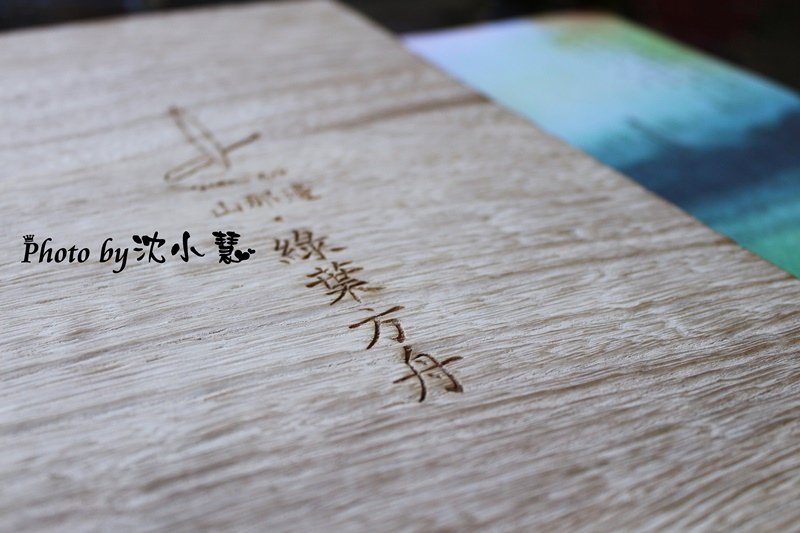 山那邊
綠葉方舟
Photo by 沈小慧